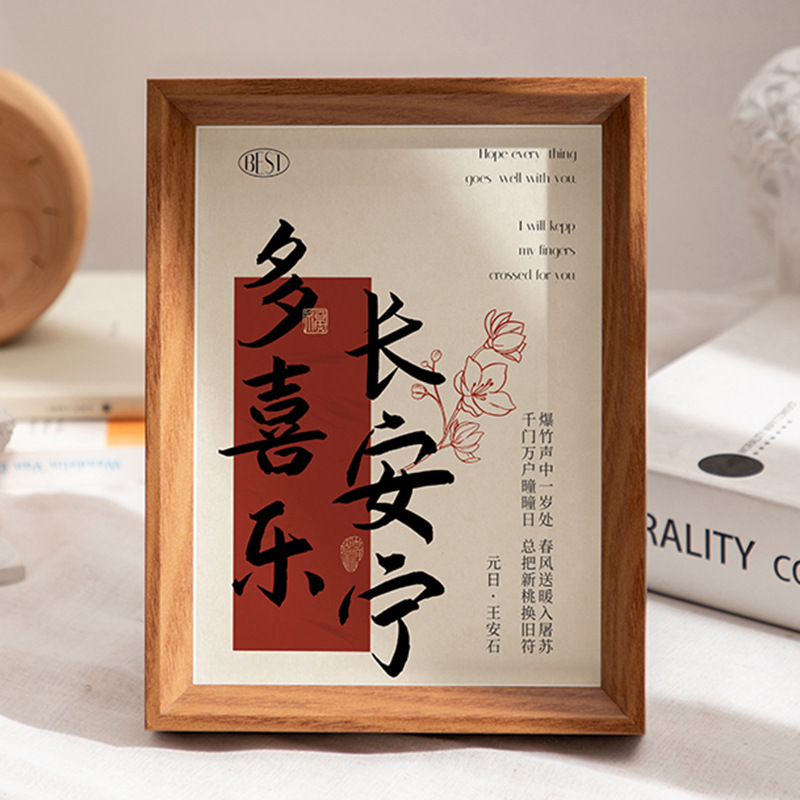 BEST
Hope every thing
goes well with you.
I will kepp
my fingers
crossed for you
多喜乐
长安宁
爆竹声中一岁处 春风送暖入屠苏
千门万户瞳瞳日 总把新桃换旧符
元日·王安石
RALITY CO